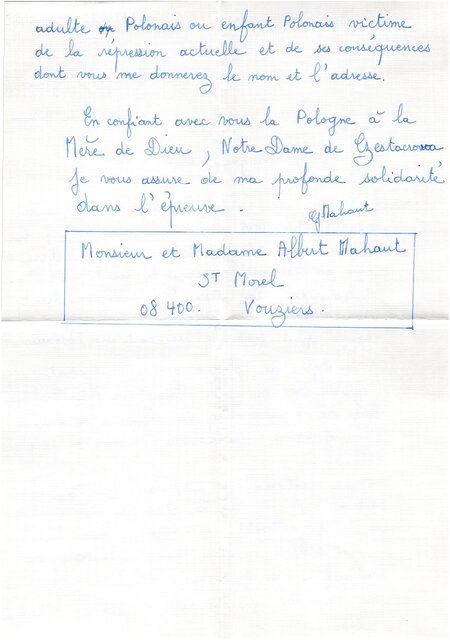 adulte Polonais ou enfant Polonais victime
de la répression actuelle et de ses conséquences
dont vous me donnerez le nom et l'adresse.
En confiant avec vous la Pologne à la
Mère de Dieu, Notre Dame de Czestacrowa
Je vous assure de ma profonde solidarité
dans l'épreuve.
Mahaut
Monsieur et Madame Albert Mahaut
ST Morel
08 400. Vouziers.